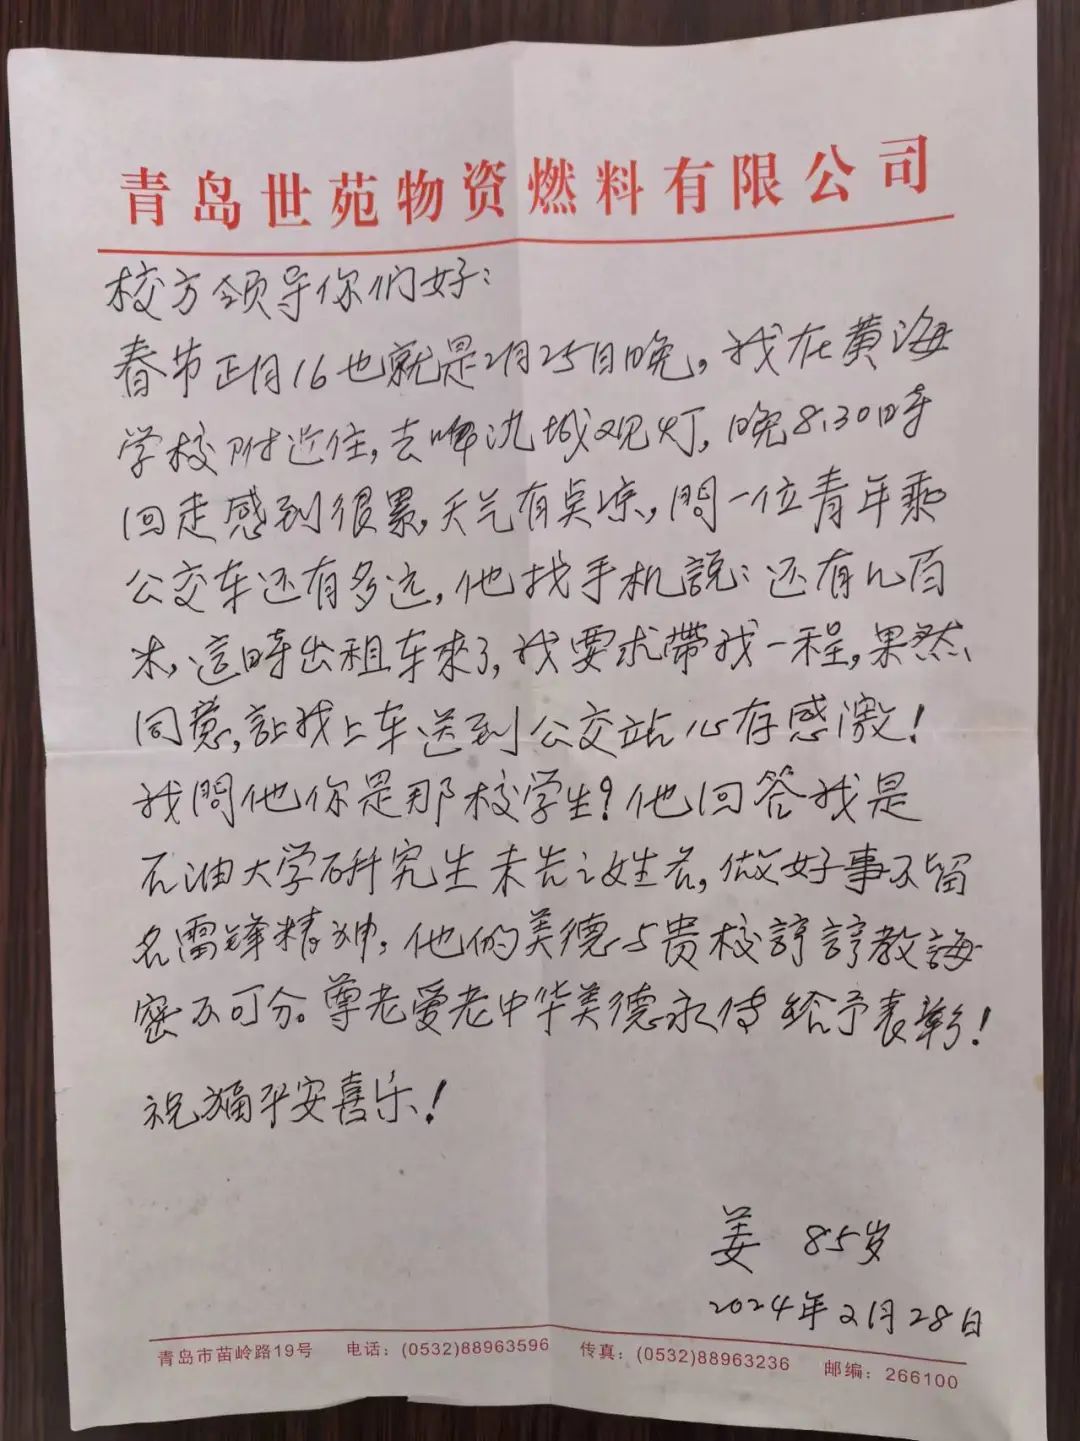 青岛世苑物资燃料有限公司
校方领导你们好：
春节正月16也就是2月25日晚，我在黄海
学校附近住，去啤汍城观灯，晚8.30时
回走感到很累，天气有点凉，問一位青年乘
公交车还有多远，他找手机説：还有几百
米，這时出租车來了，我要求帶我一程，果然
同意，讓我上车送到公交站心存感激！
我問他你是那校学生？他回答我是
石油大学研究生未告之姓名，做好事不留
名雷锋精神，他的美德与贵校諄諄教誨
密不可分。尊老爱老中华美德永传 给予表彰！
祝福平安喜乐！
姜 85岁
2024年2月28日
青岛市苗岭路19号 电话：(0532)88963596 传真：(0532)88963236 邮编：266100